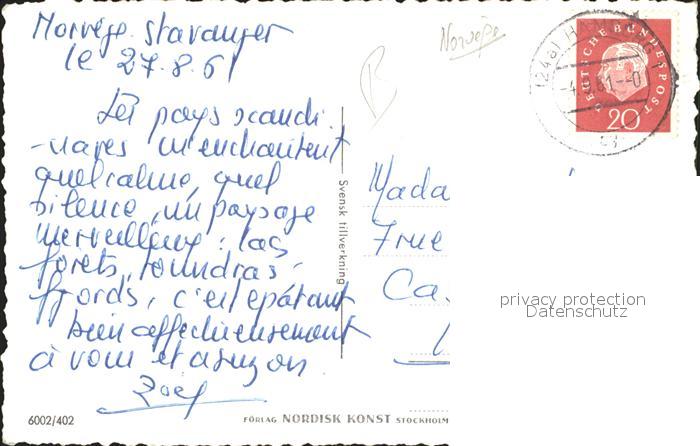 Norvège. Stavanger
le 27.8.61
Les pays scandi
-naves m'enchantent
quel calme, quel
silence, un paysage
merveilleux : lacs
forêts, toundras,
fjords, c'est épatant
bien affectueusement
à vous et
Norvège
B
(24a) HAMBURG
-4.9.61--0
DEUTSCHE BUNDESPOST
20
Svensk tillverkning
Mada
Ca.
privacy protection
Datenschutz
6002/402
FÖRLAG NORDISK KONST STOCKHOLM